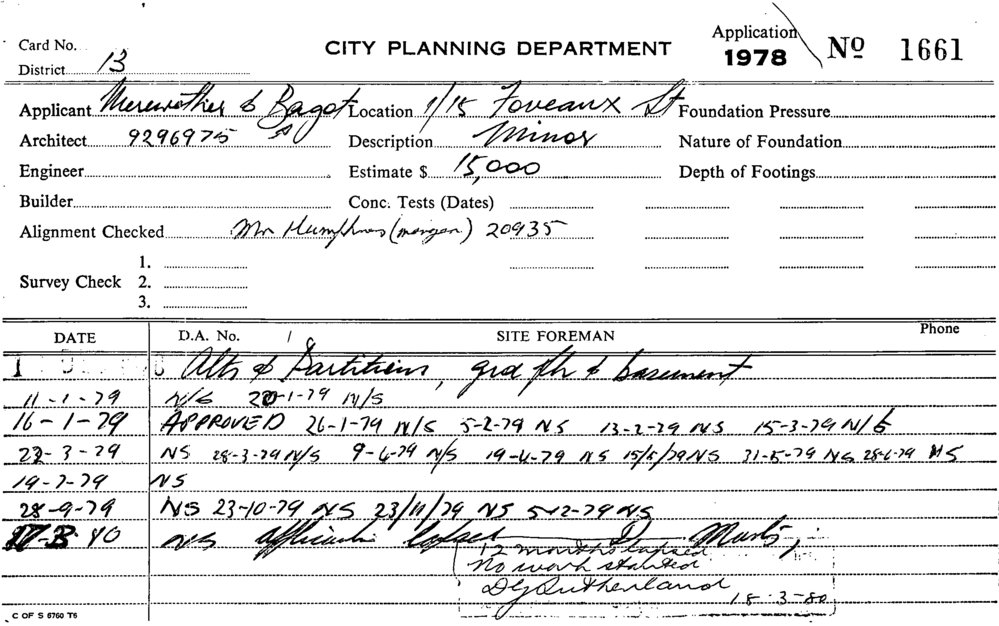 Card No.
CITY PLANNING DEPARTMENT
Application
1978
No 1661
District 13
Applicant Merewether & Bagot Location 1/15 Foveaux St Foundation Pressure
Architect 9296975 Description Minor Nature of Foundation
Engineer Estimate $ 15,000 Depth of Footings
Builder Conc. Tests (Dates)
Alignment Checked Mr Humphries 20935
1.
Survey Check 2.
3.
DATE D.A. No. SITE FOREMAN Phone
Alts & Partitions, grd flr & basement
11-1-79 N/S 20-1-79 N/S
16-1-79 APPROVED 26-1-79 N/S 5-2-79 NS 13-2-79 NS 15-3-79 N/S
22-3-79 NS 28-3-79 N/S 9-4-79 N/S 19-4-79 NS 15/5/79 NS 31-5-79 NS 28-6-79 NS
19-7-79 NS
28-9-79 NS 23-10-79 NS 23/11/79 NS 5-12-79 NS
80 NS Application lapsed
12 months lapsed
No work started
DG Sutherland
18-3-80
C OF S 6760 T6